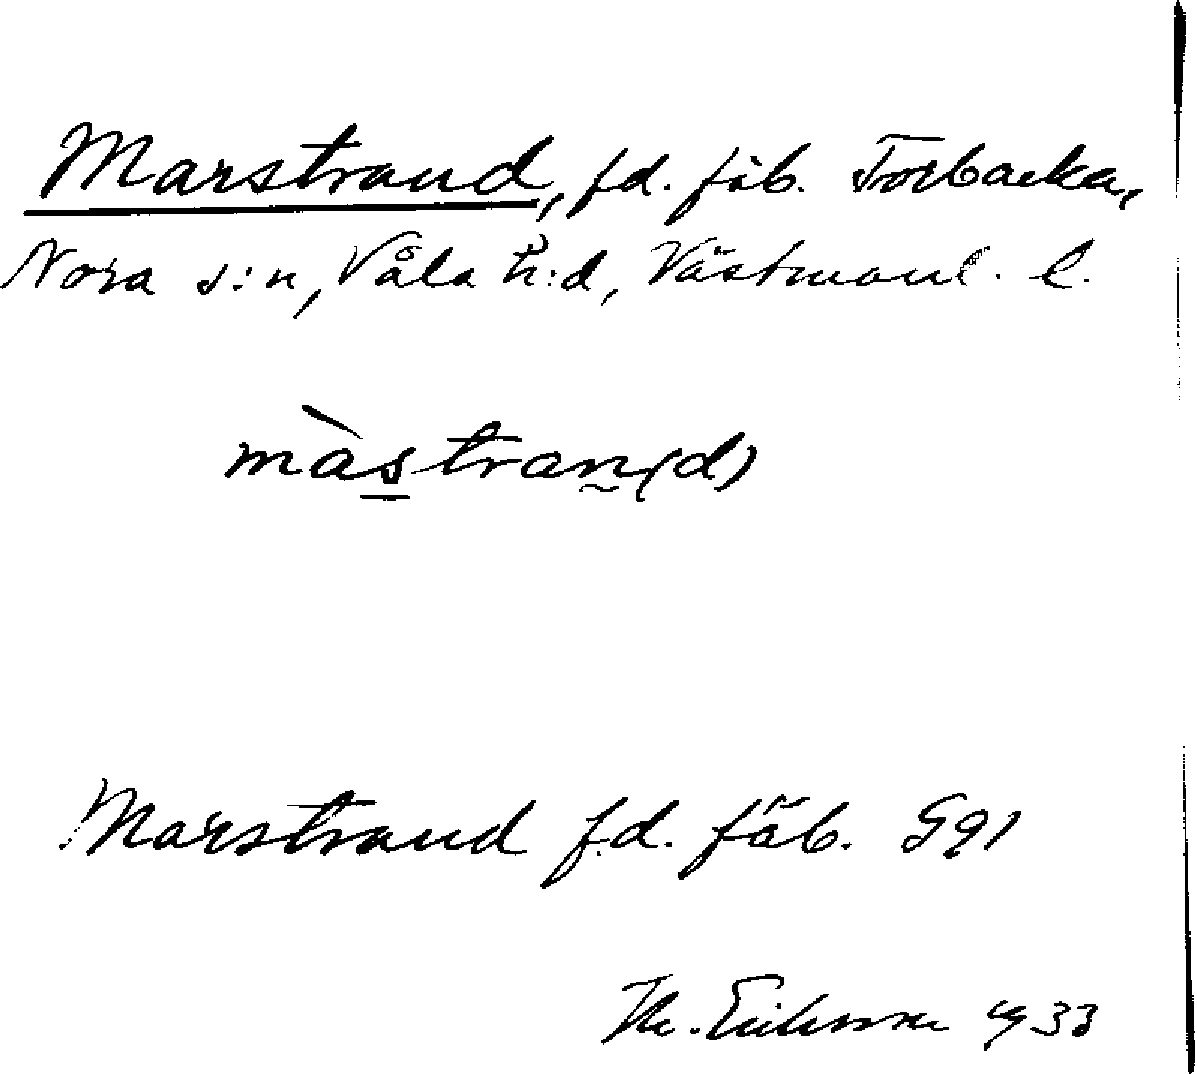 Marstrand, fd. fäb. Torbacka,
Nora s:n, Våla h:d, Västmanl. l.
màstran(d)
Marstrand f.d. fäb. G91
Th. Eriksson 1933